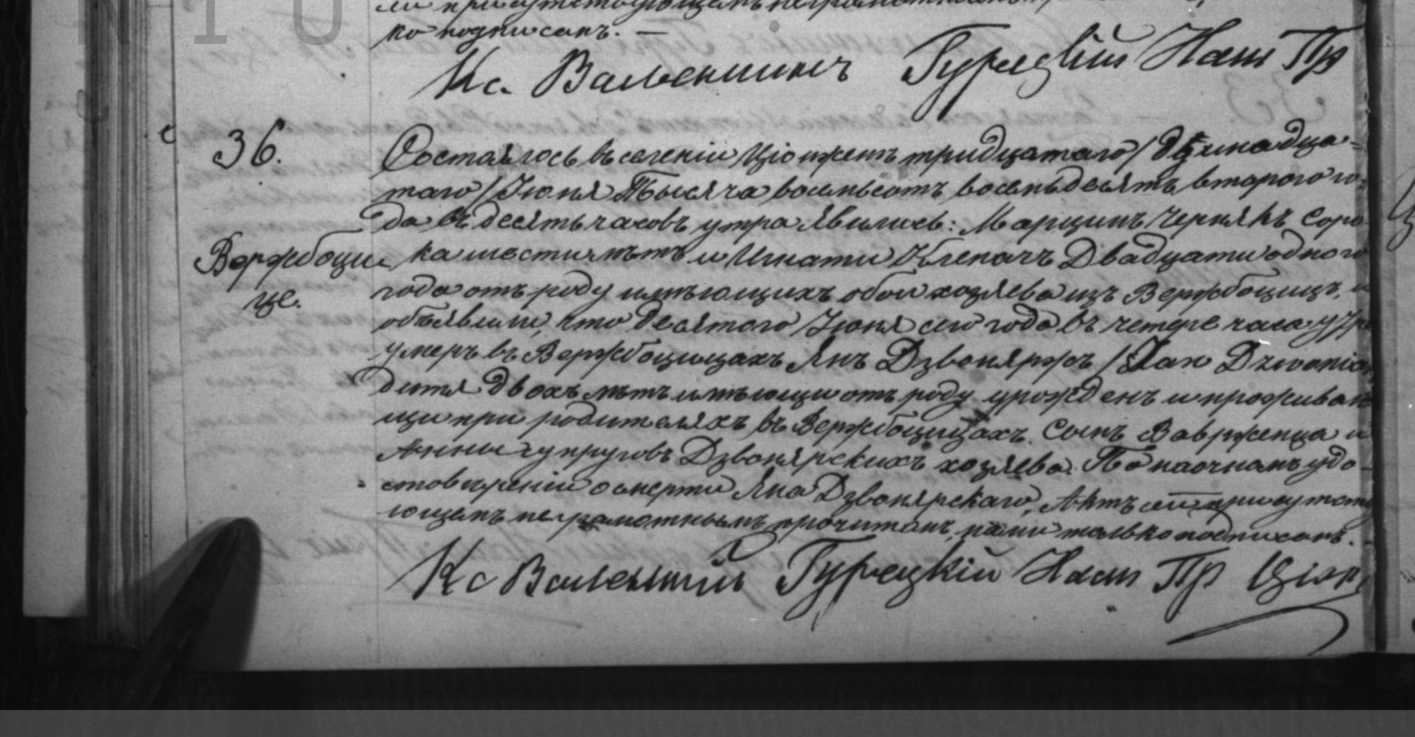 ко подписанъ. —
Кс. Валентинъ Гурецкій Наст Пр
36.
Вержбоци
це.
Состоялось въ селеніи Ціонжень тридцатаго / дванадца=
таго / Іюня Тысяча восемьсотъ восемьдесятъ втораго го
да въ десять часовъ утра. Явились: Марцинъ Чернякъ соро
ка шести лѣтъ и Игнати Клепачъ Двадцати одного
года отъ роду имѣющихъ обои хозяева изъ Вержбоцицъ, и
объявили, что десятаго Іюня сего года въ четере часа утра
умеръ въ Вержбоцицахъ Янъ Дзвоняржъ / Jan Dzwonia
дитя двохъ лѣтъ имѣющи отъ роду урожденъ и прожива
щи при родителяхъ въ Вержбоцицахъ. Сынъ Вавржинца и
Анны супруговъ Дзвонярскихъ хозяева. По наочнамъ удо
стовѣреніи о смерти Яна Дзвонярскаго, Актъ сей присутств
ющемъ неграмотнымъ прочитанъ, нами только подписанъ.
Кс Валентій Гурецкій Наст Пр Ціон